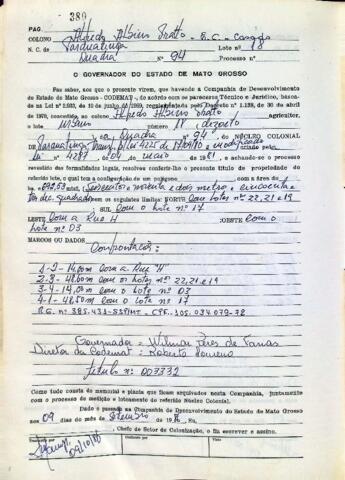 380
PAG
COLONO Alfredo Albino Bratto - B.C. Casado
N. C. de Paranatinga Lote nº 18
Quadra Nº 94 Processo nº
O GOVERNADOR DO ESTADO DE MATO GROSSO
Faz saber, aos que o presente virem, que havendo a Companhia de Desenvolvimento
do Estado de Mato Grosso - CODEMAT -, de acordo com os pareceres Técnico e Jurídico, basea-
da na Lei nº 2.933, de 10 de junho de 1969, regulamentada pelo Decreto nº 1.138, de 30 de abril
de 1970, concedido ao colono Alfredo Albino Bratto agricultor,
o lote urbano nº 18 dezoito
Quadra nº 94. DO NÚCLEO COLONIAL
DE Paranatinga Transp. p/ Lei 4225 de e modificado criado pela
Lei nº 4287 de 04 maio de 1981. e achando-se o processo
revestido das formalidades legais, resolvo conferir-lhe o presente título de propriedade do
referido lote, o qual tem a configuração de um polígono com a área de
692,53 Seiscentos noventa e dois metro e cincoenta e
tres dec. quadrados e os seguintes limites: NORTE Com lotes nº 22, 21 e 19
SUL com o lote nº 17
LESTE Com a Rua H OESTE com o
lote nº 03
MARCOS OU DADOS
Confrontacões:
1-2 - 14,00m com a Rua H
2-3 - 48,50m com os lotes nº 22, 21 e 19
3-4 - 14,00m com o lote nº 03
4-1 - 48,50m com o lote nº 17
R.G. nº 385.431-SSP/MT - CPF. 105.034.079-72
Governador = Wilmar Peres de Farias
Diretor da Codemat = Roberto
titulo nº 003332
Como tudo consta do memorial e planta que ficam arquivados nesta Companhia, juntamente
com o processo de medição e loteamento do referido Núcleo Colonial.
Dado e passado na Companhia de Desenvolvimento do Estado de Mato Grosso
aos 09 dias do mês de Setembro de 1986. Eu,
Chefe do Setor de Colonização, o fiz escrever e assino.
09/10/86
VISTO
VISTO